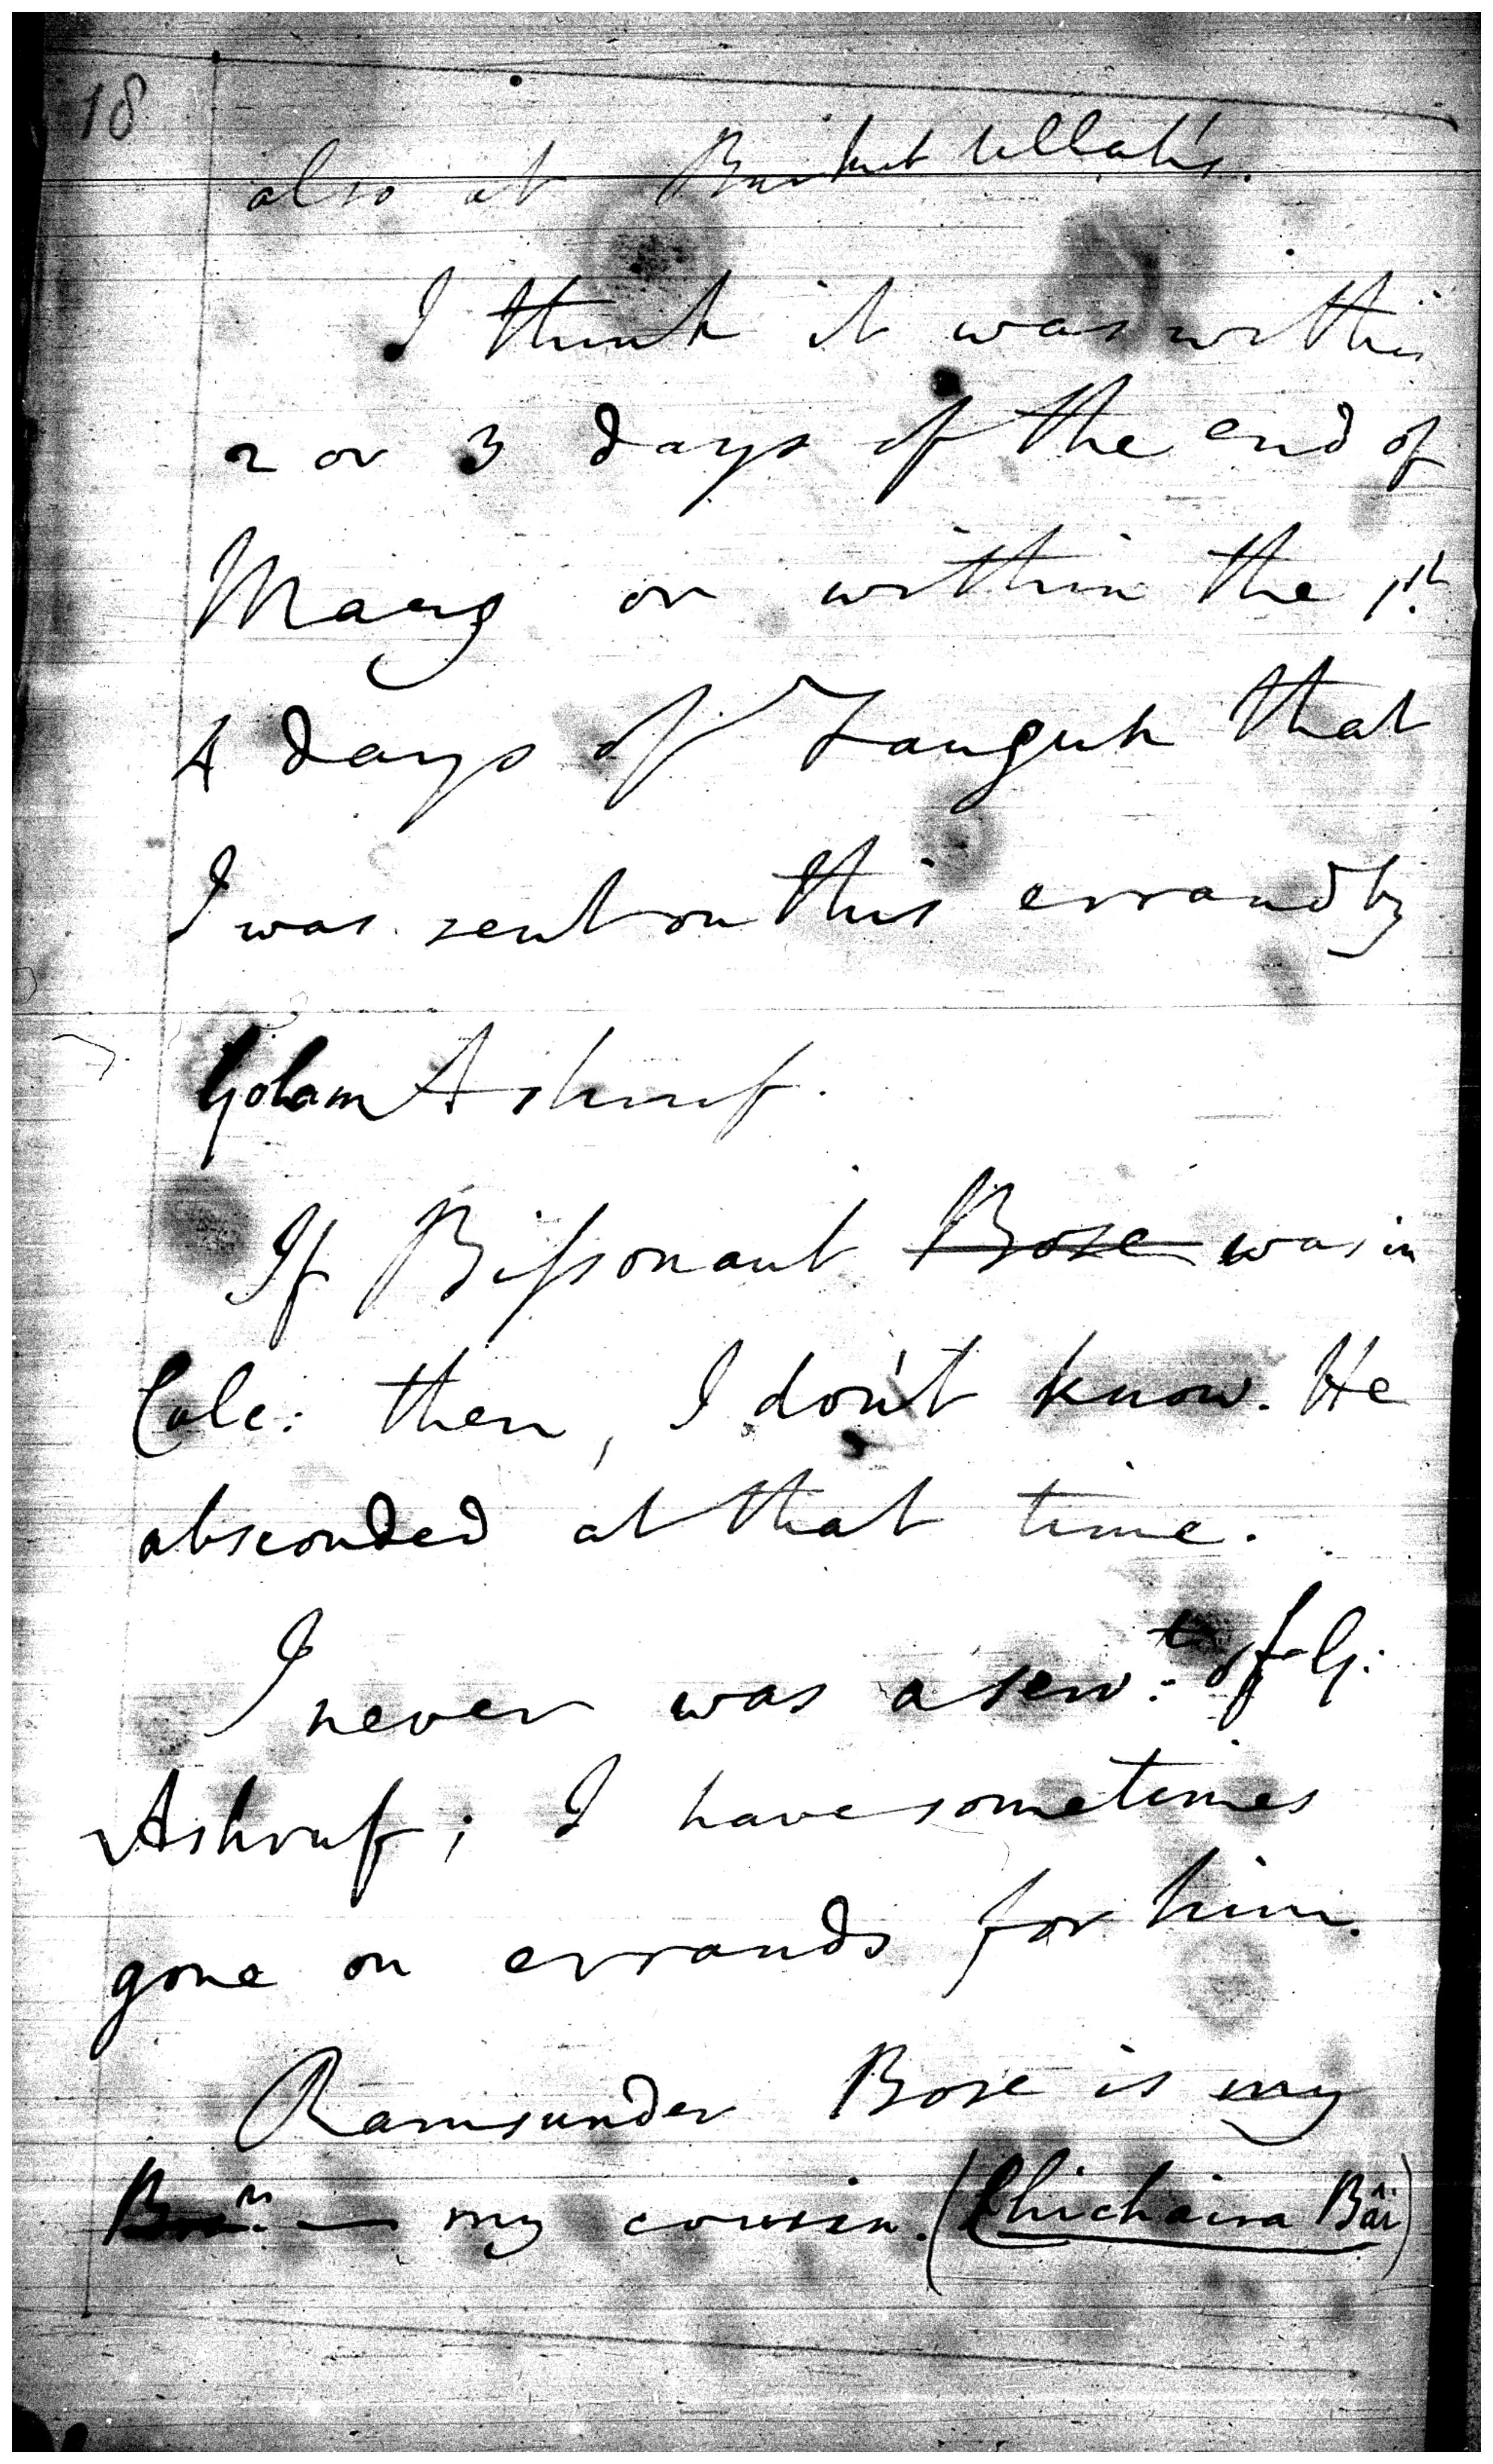 18
also at Burkut Ullah's.
I think it was within
2 or 3 days of the end of
Maug or within the 1st
4 days of Faugun that
I was sent on this errand by
Golam Ashruf.
If Bissonaut Bose was in
Calc: then, I don't know. He
absconded at that time.
I never was a serv:t of G:
Ashruf; I have sometimes
gone on errands for him.
Ramsunder Bose is my
my cousin. (Chichaira Bâi)